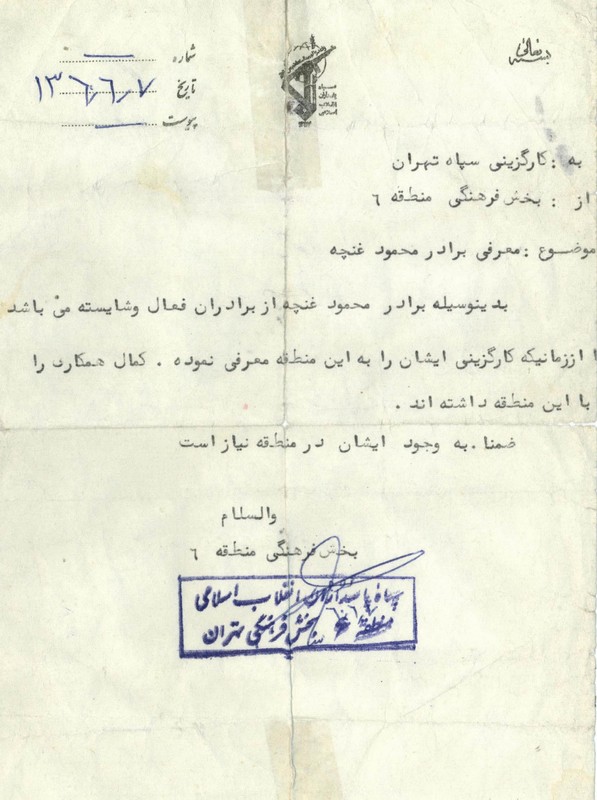 بسمه تعالی
شماره
تاریخ ۱۳۶۶/۶/۷
پیوست
سپاه
پاسداران
انقلاب
اسلامی
به : کارگزینی سپاه تهران
از : بخش فرهنگی منطقه ٦
موضوع : معرفی برادر محمود غنچه
بدینوسیله برادر محمود غنچه از برادران فعال وشایسته می باشد
اززمانیکه کارگزینی ایشان را به این منطقه معرفی نموده . کمال همکارد را
با این منطقه داشته اند .
ضمنا . به وجود ایشان در منطقه نیاز است
والسلام
بخش فرهنگی منطقه ٦
سپاه پاسداران انقلاب اسلامی
منطقه
بخش فرهنگی تهران